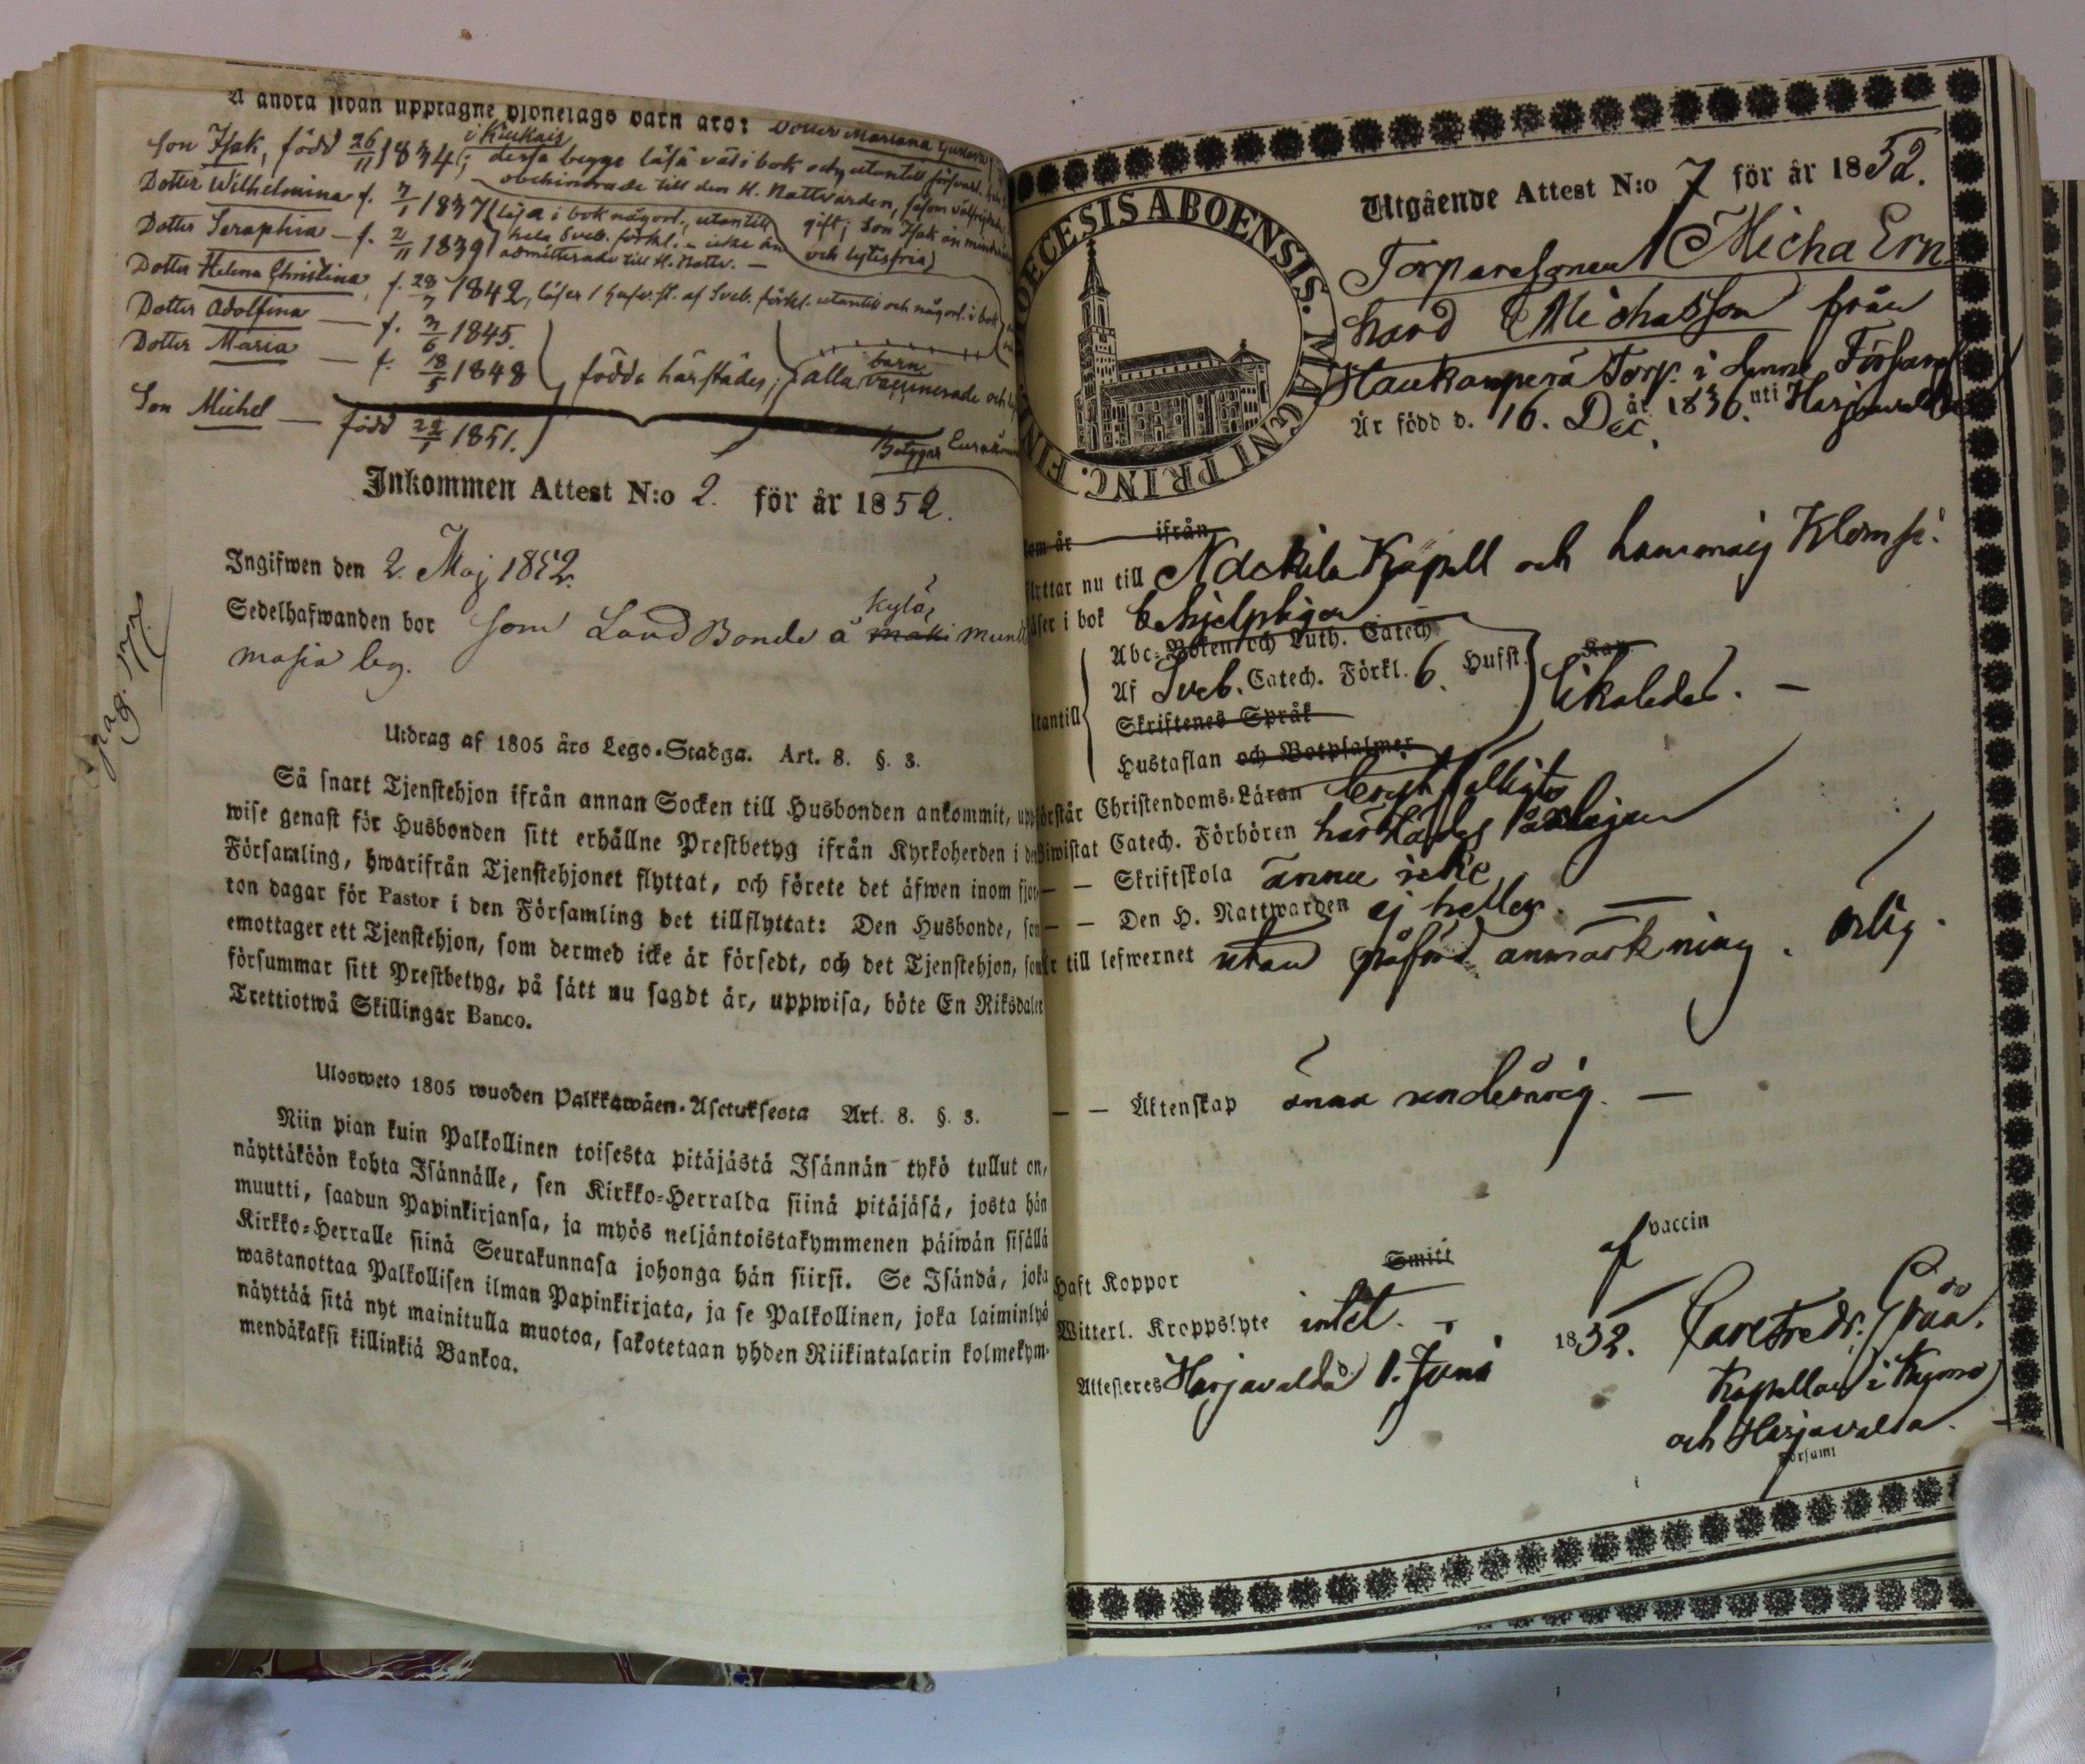 Å andra sidan upptagne hjonelags barn äro: Dotter Mariana Gustava
i Kiukais
Son Isak, född 26/11 1834; dessa begge läsa väl i bok och utantill försvarl.
obehindrade till den H. Nattvarden, såsom välfrejdade
Dotter Wilhelmina f. 7/1 1837 läsa i bok någorl., utantill gift; Son Isak än
Dotter Seraphia – f. 2/11 1839 hela Sveb. förkl. – icke än och lytesfria
admitterade till H. Nattv. –
Dotter Helena Christina, f. 28/7 1842, läser 1 af Sveb. förkl. utantill och någorl. i bok
Dotter Adolfina — f. 7/6 1845.
Dotter Maria — f. 18/5 1848 födda härstädes; alla barn vaccinerade och
Son Michel — född 22/7 1851.
Betygar Eurakåminne
Inkommen Attest N:o 2. för år 1852.
Ingifwen den 2. Maj 1852.
Sedelhafwanden bor som Land Bonde å maki kylä,
masia beg.
pag. 177.
Utdrag af 1805 års Lego-Stadga. Art. 8. §. 3.
Så snart Tjenstehjon ifrån annan Socken till Husbonden ankommit, upp-
wise genast för Husbonden sitt erhållne Prestbetyg ifrån Kyrkoherden i den
Församling, hwarifrån Tjenstehjonet flyttat, och förete det äfwen inom fjor-
ton dagar för Pastor i den Församling det tillflyttat: Den Husbonde, som
emottager ett Tjenstehjon, som dermed icke är försedt, och det Tjenstehjon, som
försummar sitt Prestbetyg, på sätt nu sagdt är, uppwisa, böte En Riksdaler
Trettiotwå Skillingar Banco.
Ulosweto 1805 wuoden Palkkawäen-Asetuksesta Art. 8. §. 3.
Niin pian kuin Palkollinen toisesta pitäjästä Isännän tykö tullut on,
näyttäköön kohta Isännälle, sen Kirkko-Herralda siinä pitäjäsä, josta hän
muutti, saadun Papinkirjansa, ja myös neljäntoistakymmenen päiwän sisällä
Kirkko-Herralle siinä Seurakunnasa johonga hän siirsi. Se Isändä, joka
wastanottaa Palkollisen ilman Papinkirjata, ja se Palkollinen, joka laiminlyö
näyttää sitä nyt mainitulla muotoa, sakotetaan yhden Riikintalarin kolmekym-
mendäkaksi killinkiä Bankoa.
DIOECESIS ABOENSIS. MAGNI PRINC. FINL.
Utgående Attest N:o 7 för år 1852.
Torparesonen Micha Ern
hard Michasson från
Haukanperä Torp i denne Församl.
Är född d. 16. Dec. år 1836. uti Harjavalda
som är ifrån
flyttar nu till Nackila Kapell och hemmaig Klemsi.
läser i bok behjelpligen
Abc-Boken och Luth. Catech
utantill Af Sveb. Catech. Förkl. 6. Hufst. Kap likaledes. –
Skriftenes Språk
Hustaflan och Botpsalmer
förstår Christendoms-Läran
biwistat Catech. Förhören härstädes
– – Skriftskola ännu icke,
– – Den H. Nattwarden ej heller. —
är till lefwernet utan påförd anmärkning. ärlig.
– – Äktenskap ännu renderövrig. —
Haft Koppor Smitt af vaccin
Witterl. Kroppslyte intet. –
Attesteres Harjavalda d. 1. Juni 1852. Carl Fredr. Gröö.
Kapellan i Kjumo
och Harjavalda.
Församl